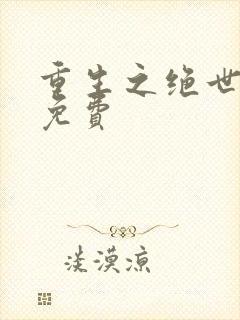 重生之绝世
免费
淡漠凉